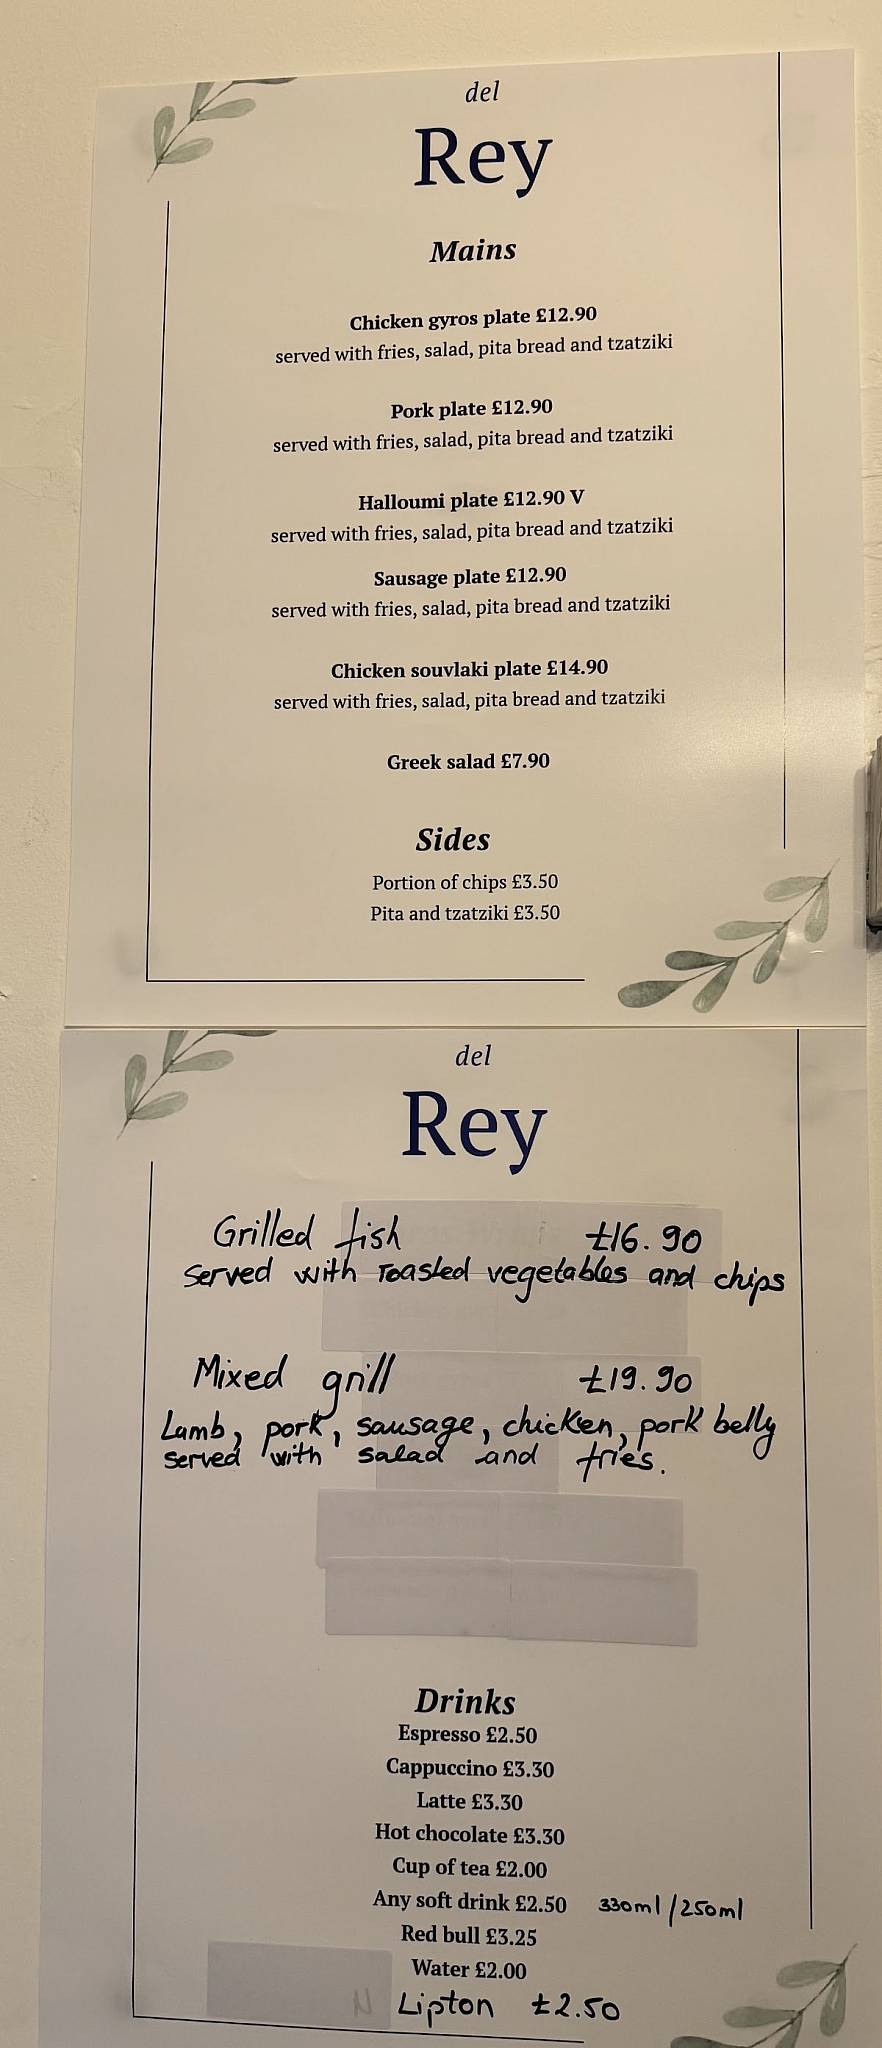 del
Rey
Mains
Chicken gyros plate £12.90
served with fries, salad, pita bread and tzatziki
Pork plate £12.90
served with fries, salad, pita bread and tzatziki
Halloumi plate £12.90 V
served with fries, salad, pita bread and tzatziki
Sausage plate £12.90
served with fries, salad, pita bread and tzatziki
Chicken souvlaki plate £14.90
served with fries, salad, pita bread and tzatziki
Greek salad £7.90
Sides
Portion of chips £3.50
Pita and tzatziki £3.50
del
Rey
Grilled fish £16.90
Served with roasted vegetables and chips
Mixed grill £19.90
Lamb, pork, sausage, chicken, pork belly
served with salad and fries.
Drinks
Espresso £2.50
Cappuccino £3.30
Latte £3.30
Hot chocolate £3.30
Cup of tea £2.00
Any soft drink £2.50 330ml/250ml
Red bull £3.25
Water £2.00
Lipton £2.50